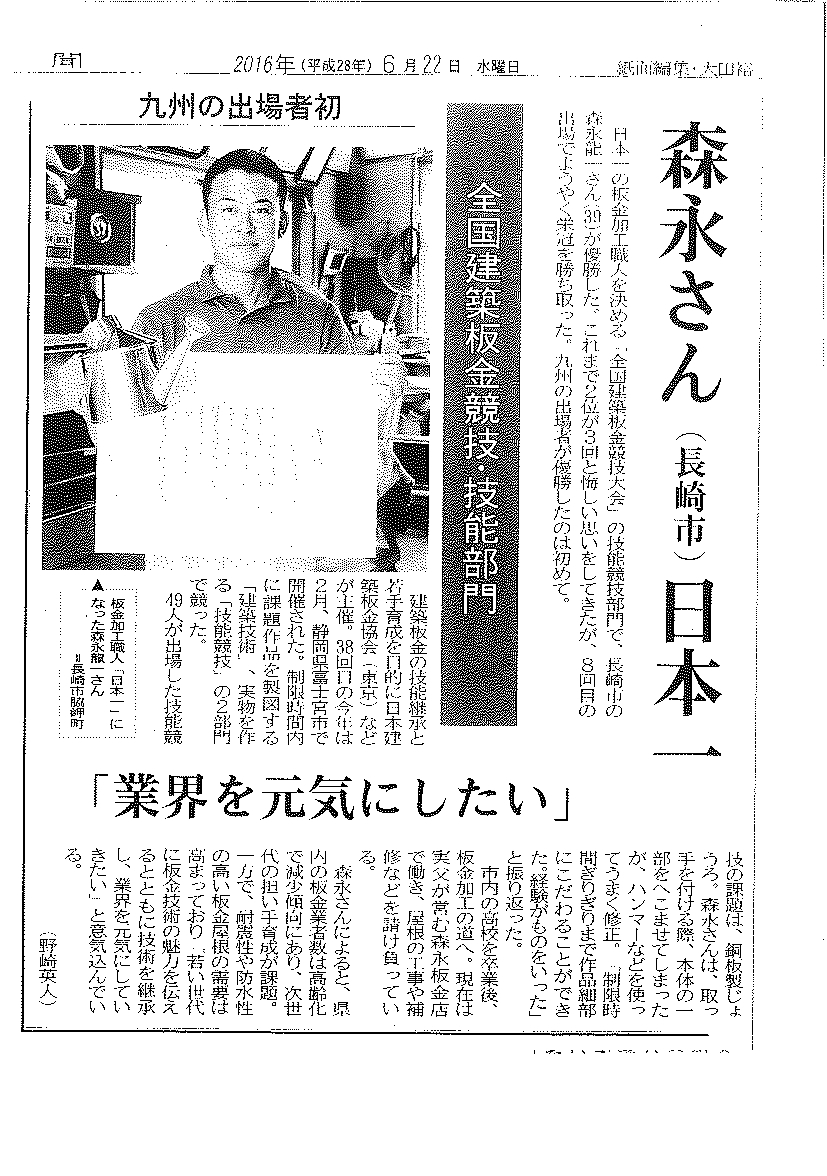 聞
2016年(平成28年) 6月22日 水曜日
紙面編集・大田裕
森永さん(長崎市)日本一
全国建築板金競技・技能部門
九州の出場者初
日本一の板金加工職人を決める「全国建築板金競技大会」の技能競技部門で、長崎市の
森永龍一さん(39)が優勝した。これまで2位が3回と悔しい思いをしてきたが、8回目の
出場でようやく栄冠を勝ち取った。九州の出場者が優勝したのは初めて。
建築板金の技能継承と
若手育成を目的に日本建
築板金協会(東京)など
が主催。38回目の今年は
2月、静岡県富士宮市で
開催された。制限時間内
に課題作品を製図する
「建築技術」、実物を作
る「技能競技」の2部門
で競った。
49人が出場した技能競
▲板金加工職人「日本一」に
なった森永龍一さん
=長崎市脇岬町
「業界を元気にしたい」
技の課題は、銅板製じょ
うろ。森永さんは、取っ
手を付ける際、本体の一
部をへこませてしまった
が、ハンマーなどを使っ
てうまく修正。「制限時
間ぎりぎりまで作品細部
にこだわることができ
た。経験がものをいった」
と振り返った。
市内の高校を卒業後、
板金加工の道へ。現在は
実父が営む森永板金店
で働き、屋根の工事や補
修などを請け負ってい
る。
森永さんによると、県
内の板金業者数は高齢化
で減少傾向にあり、次世
代の担い手育成が課題。
一方で、耐震性や防水性
の高い板金屋根の需要は
高まっており「若い世代
に板金技術の魅力を伝え
るとともに技術を継承
し、業界を元気にしてい
きたい」と意気込んでい
る。
(野崎英人)